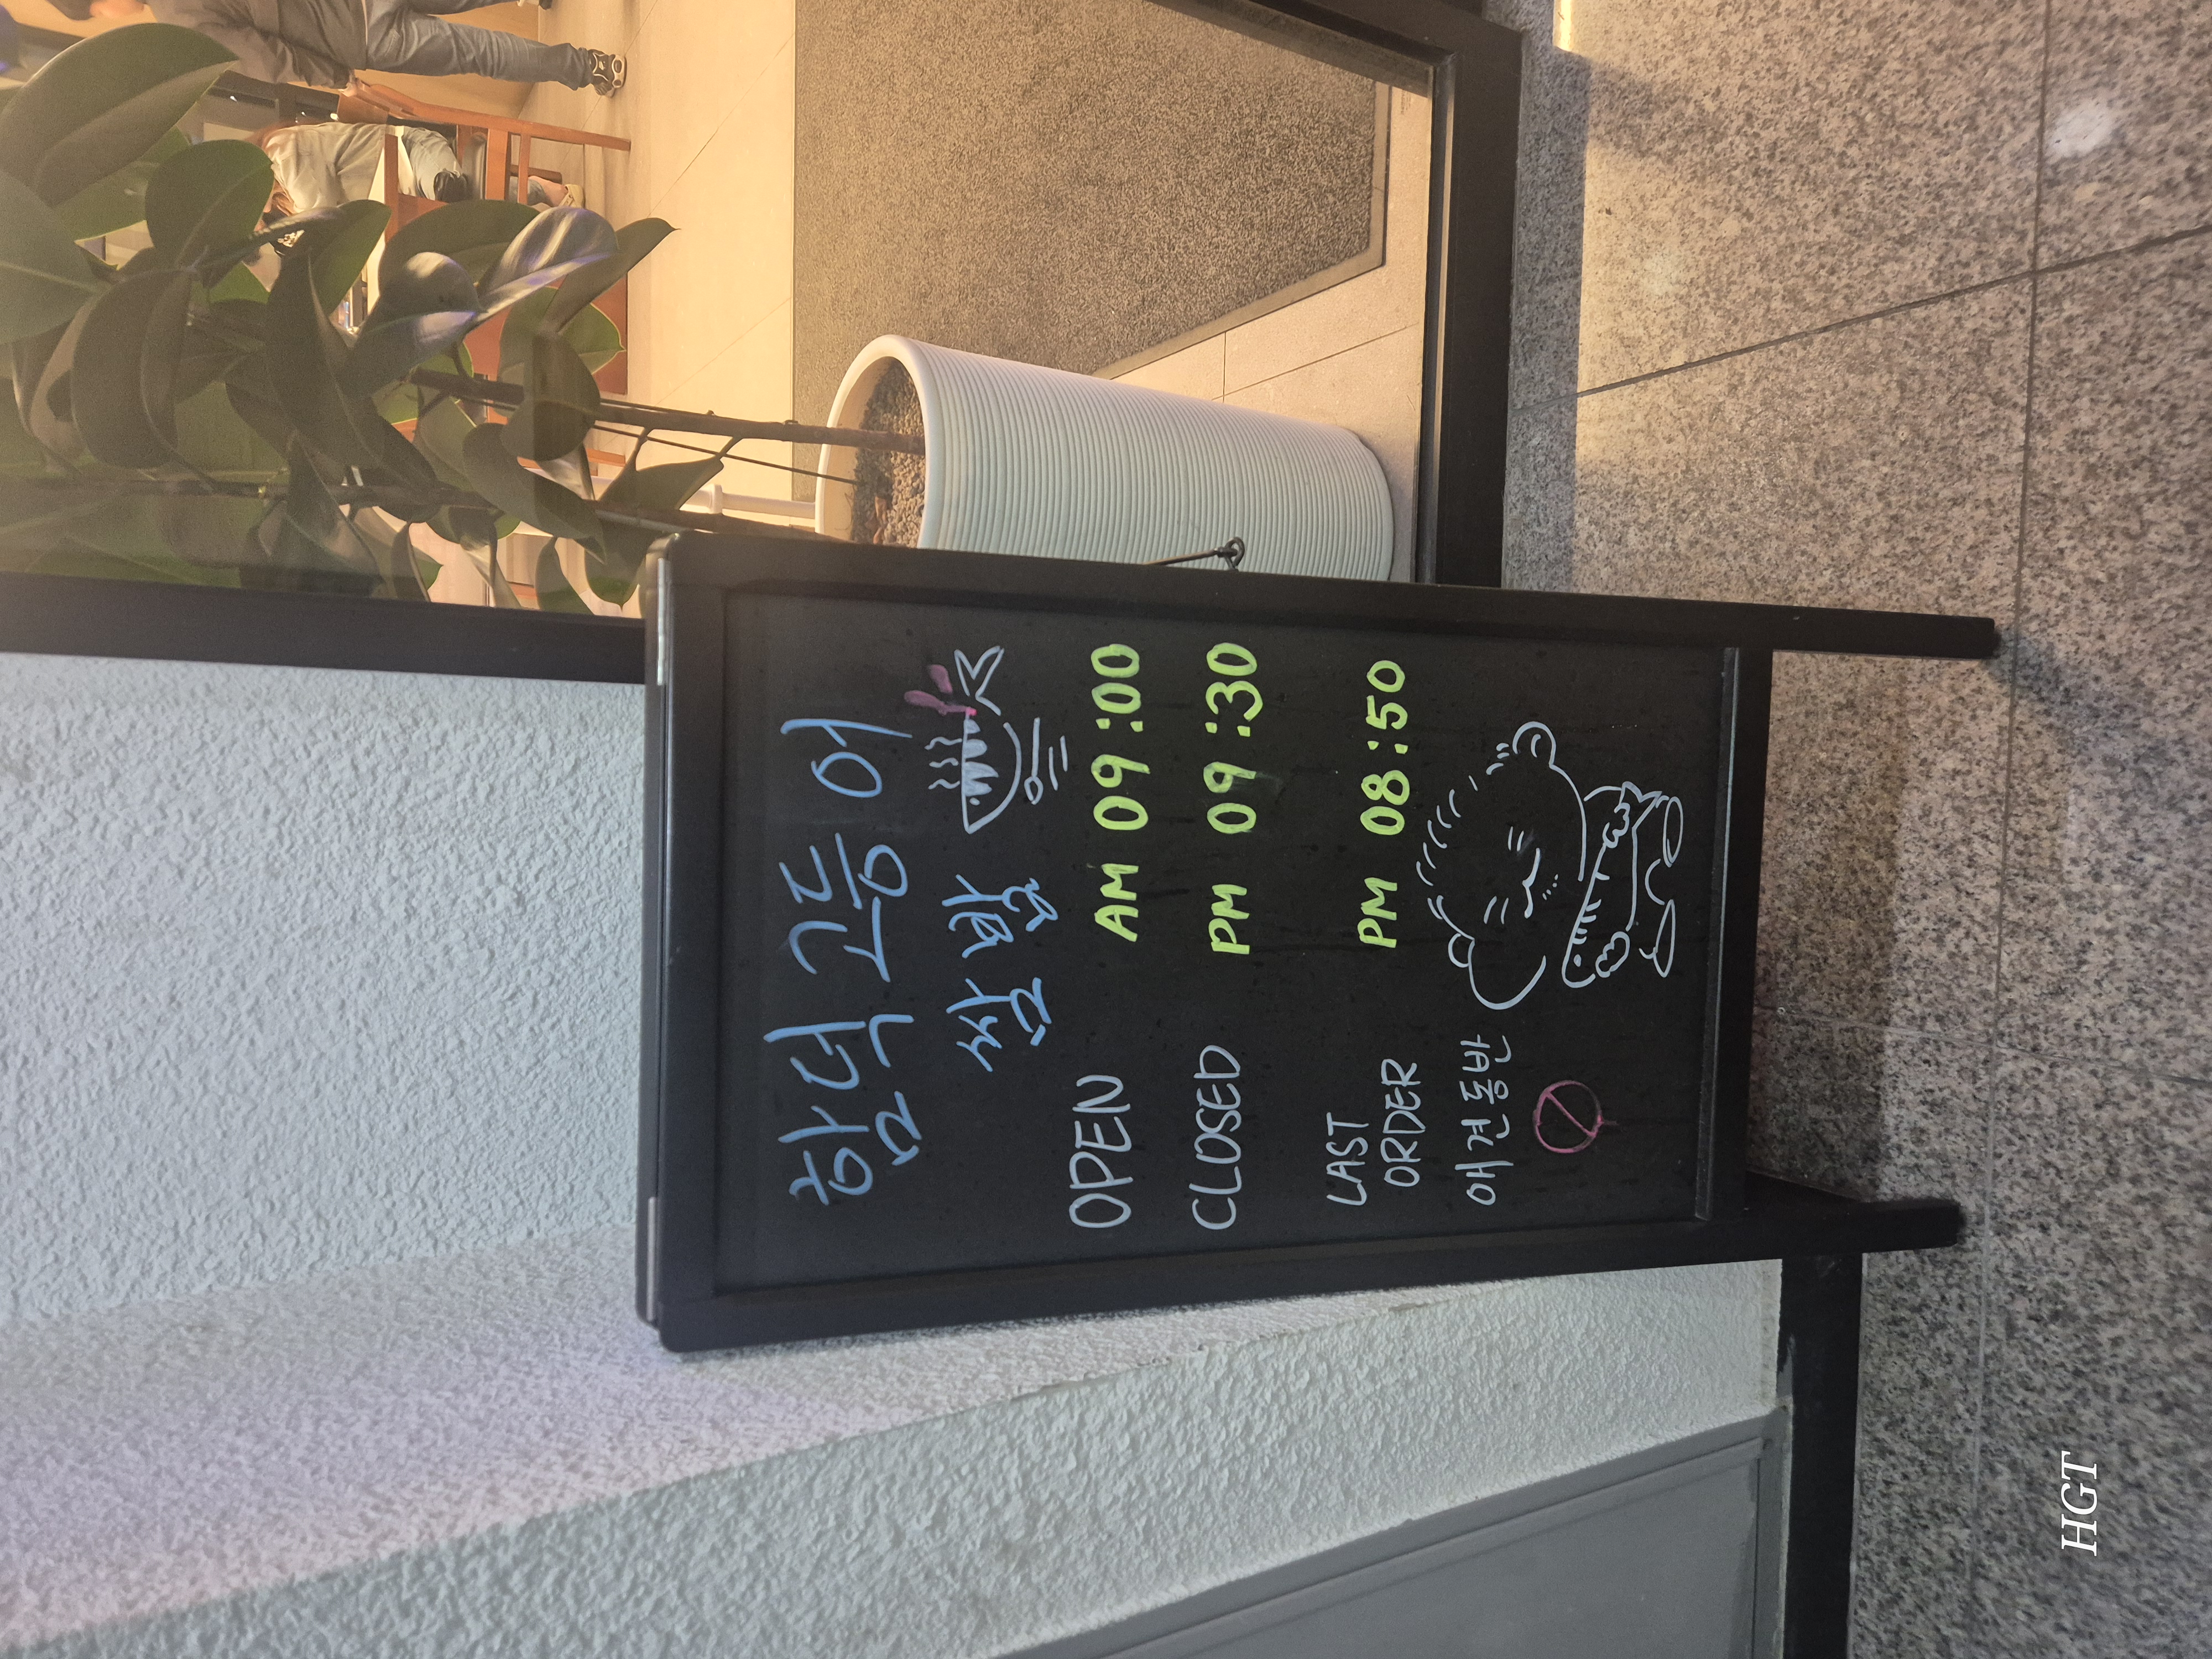 함덕 고등어
쌈밥
OPEN AM 09:00
CLOSED PM 09:30
LAST
ORDER PM 08:50
애견동반
HGT